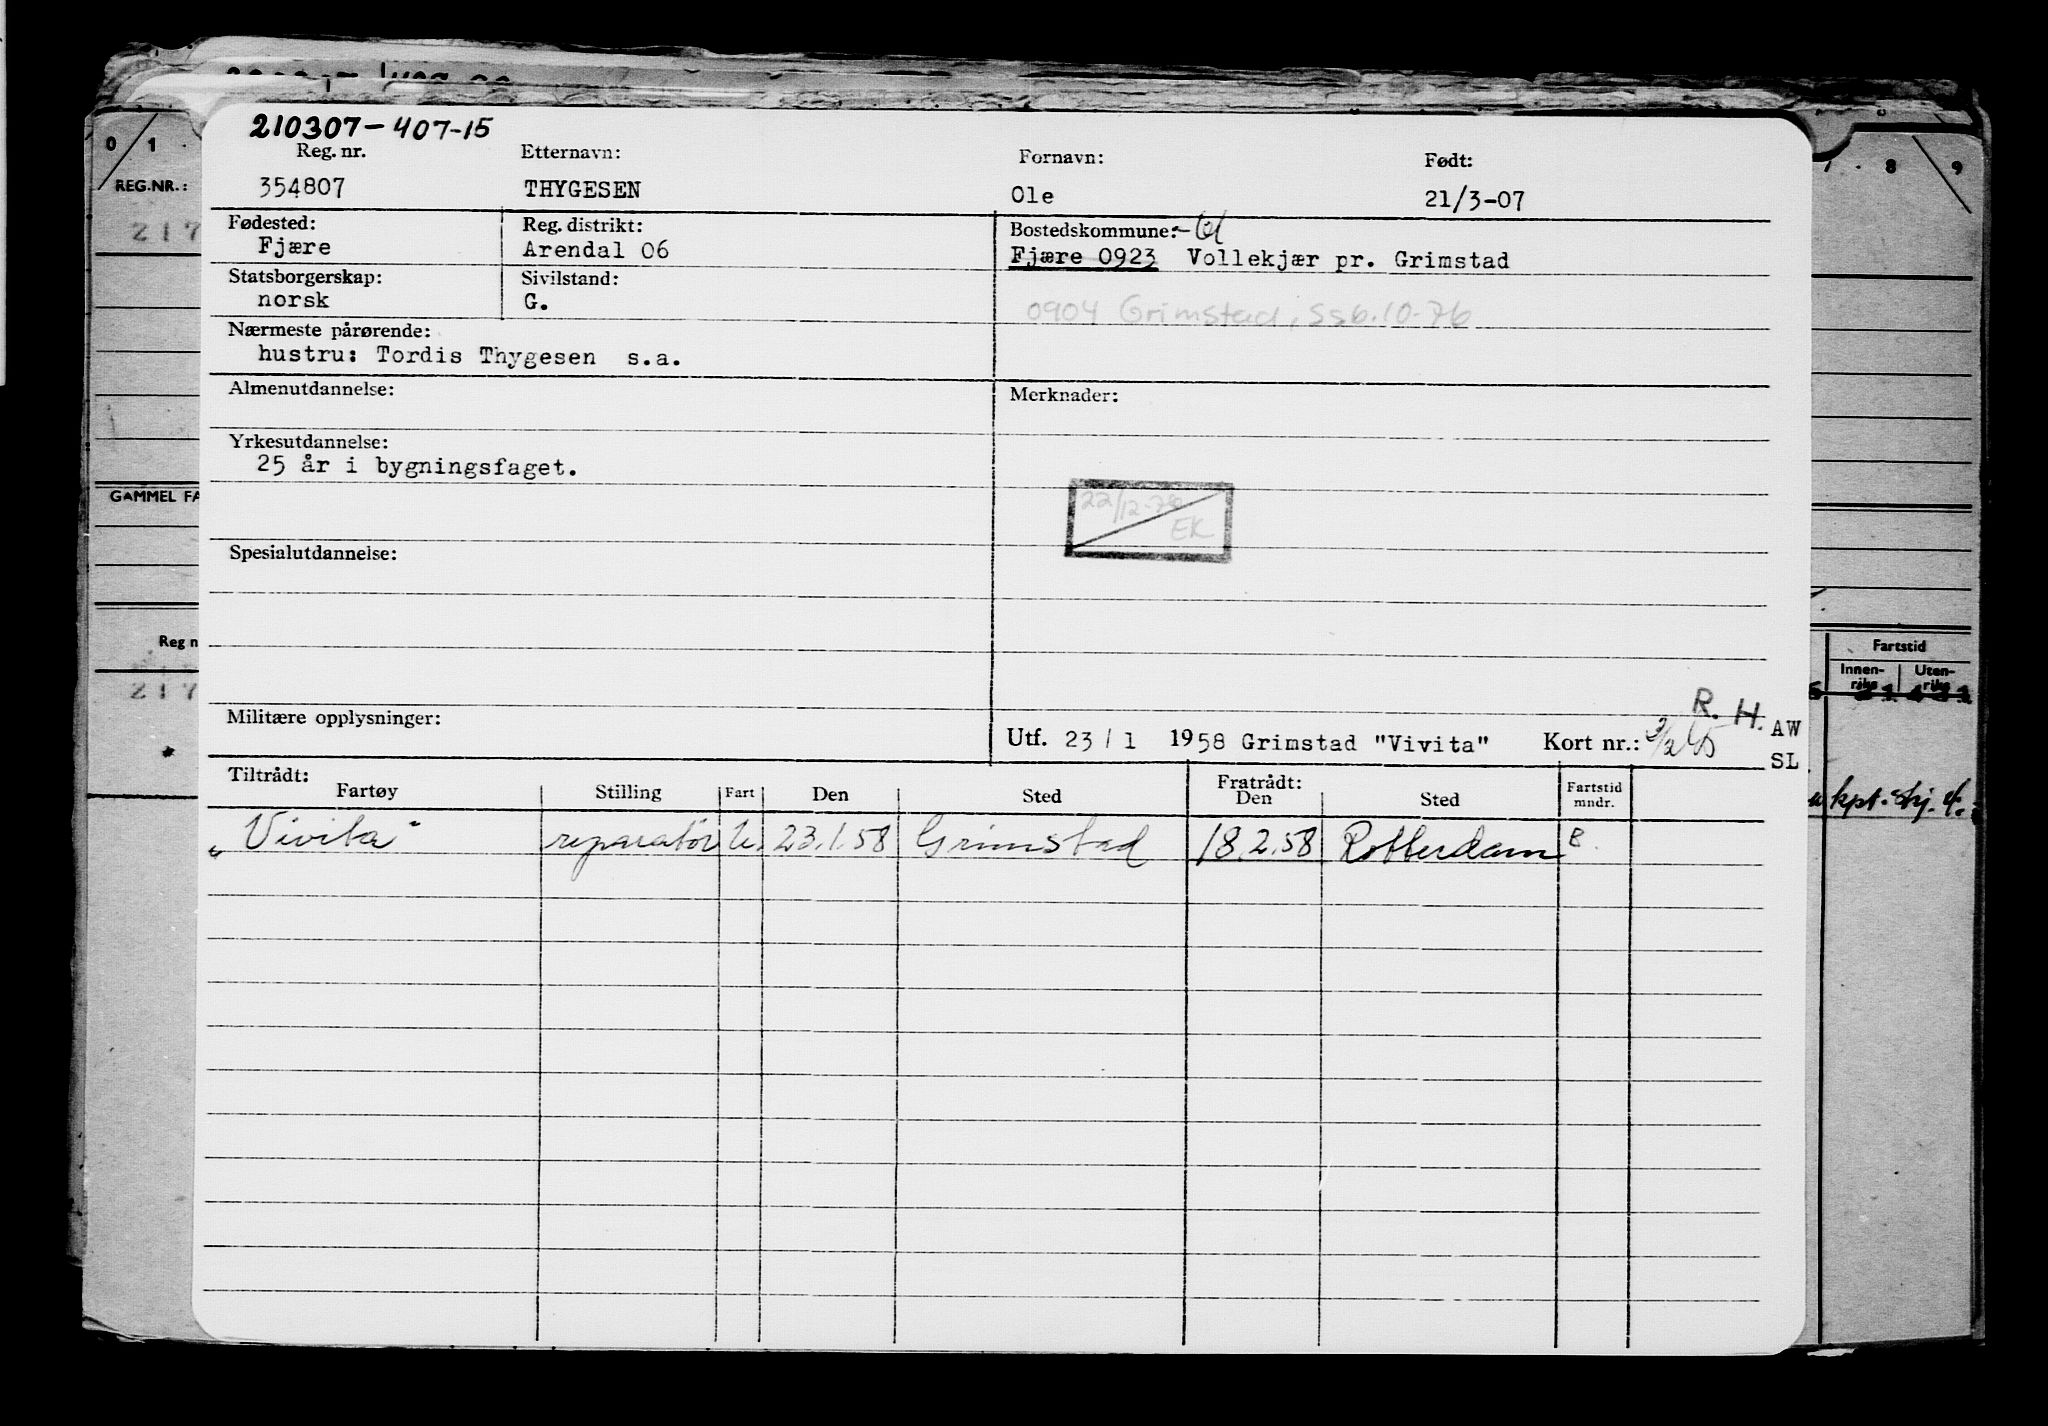 210307-407-15
Reg. nr. Etternavn: Fornavn: Født:
354807 THYGESEN Ole 21/3-07
Fødested: Reg. distrikt: Bostedskommune:
Fjære Arendal 06 Fjære 0923 Vollekjær pr. Grimstad
Statsborgerskap: Sivilstand:
norsk G. 0904 Grimstad, ssb.10-76
Nærmeste pårørende:
hustru: Tordis Thygesen s.a.
Almenutdannelse: Merknader:
Yrkesutdannelse:
25 år i bygningsfaget.
EK
Spesialutdannelse:
R. H.
Militære opplysninger: Utf. 23/1 1958 Grimstad "Vivita" Kort nr.: AW
SL
Tiltrådt: Fratrådt:
Fartøy Stilling Fart Den Sted Den Sted Fartstid mndr.
"Vivita" reparatör U. 23.1.58 Grimstad 18.2.58 Rotterdam B.
0 1 8 9
REG.NR.:
217
GAMMEL FA
Reg n
217
Fartstid
Innen-
rike
Uten-
rike
kpt. skj. 4.